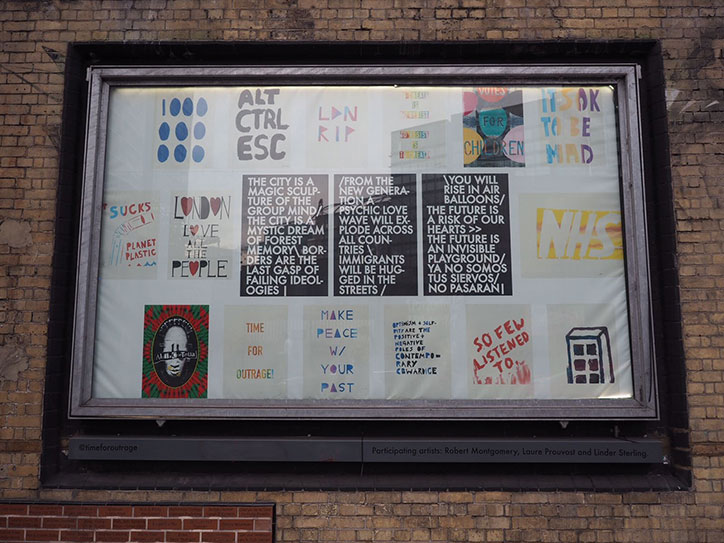 1000
ALT
CTRL
ESC
LDN
RIP
VOTES
FOR
CHILDREN
IT'S OK
TO BE
MAD
SUCKS
PLANET
PLASTIC
LONDON
LOVE
ALL THE
PEOPLE
THE CITY IS A
MAGIC SCULP-
TURE OF THE
GROUP MIND/
THE CITY IS A
MYSTIC DREAM
OF FOREST
MEMORY\ BOR-
DERS ARE THE
LAST GASP OF
FAILING IDEOL-
OGIES |
/FROM THE
NEW GENERA-
TION A
PSYCHIC LOVE
WAVE WILL EX-
PLODE ACROSS
ALL COUN-
TRIES \
IMMIGRANTS
WILL BE HUG-
GED IN THE
STREETS /
\YOU WILL
RISE IN AIR
BALLOONS/
THE FUTURE IS
A RISK OF OUR
HEARTS >>
THE FUTURE IS
AN INVISIBLE
PLAYGROUND/
YA NO SOMOS
TUS SIERVOS/
NO PASARAN|
NHS
TIME
FOR
OUTRAGE!
MAKE
PEACE
W/
YOUR
PAST
OPTIMISM + SULP-
ITY ARE THE
POSITIVE +
NEGATIVE
POLES OF
CONTEMPO-
RARY
COWARDICE
SO FEW
LISTENED
TO
@timeforoutrage
Participating artists: Robert Montgomery, Laure Prouvost and Linder Sterling.